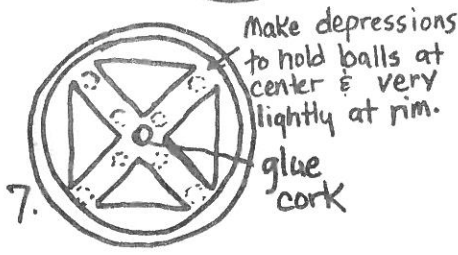 Make depressions
to hold balls at
center & very
lightly at rim.
glue
cork
7.